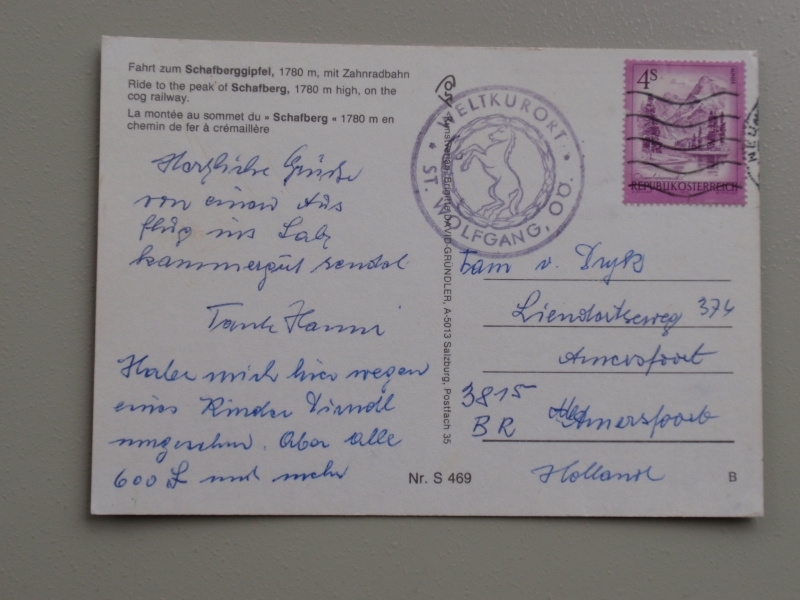 Fahrt zum Schafberggipfel, 1780 m, mit Zahnradbahn
Ride to the peak of Schafberg, 1780 m high, on the
cog railway.
La montée au sommet du »Schafberg« 1780 m en
chemin de fer à crémaillère
Herzliche Grüße
von einem Aus
flug ins Salz
kammergut sendet
Tante Hanni
Habe mich hier wegen
eines Kinder Dirndl
umgesehen. Aber alle
600 S und mehr
WELTKURORT
ST. WOLFGANG, OÖ.
GRÜNDLER, A-5013 Salzburg, Postfach 35
4 S
REPUBLIK ÖSTERREICH
Fam v.
374
Amersfoort
3815
BR
Amersfoort
Holland
Nr. S 469
B